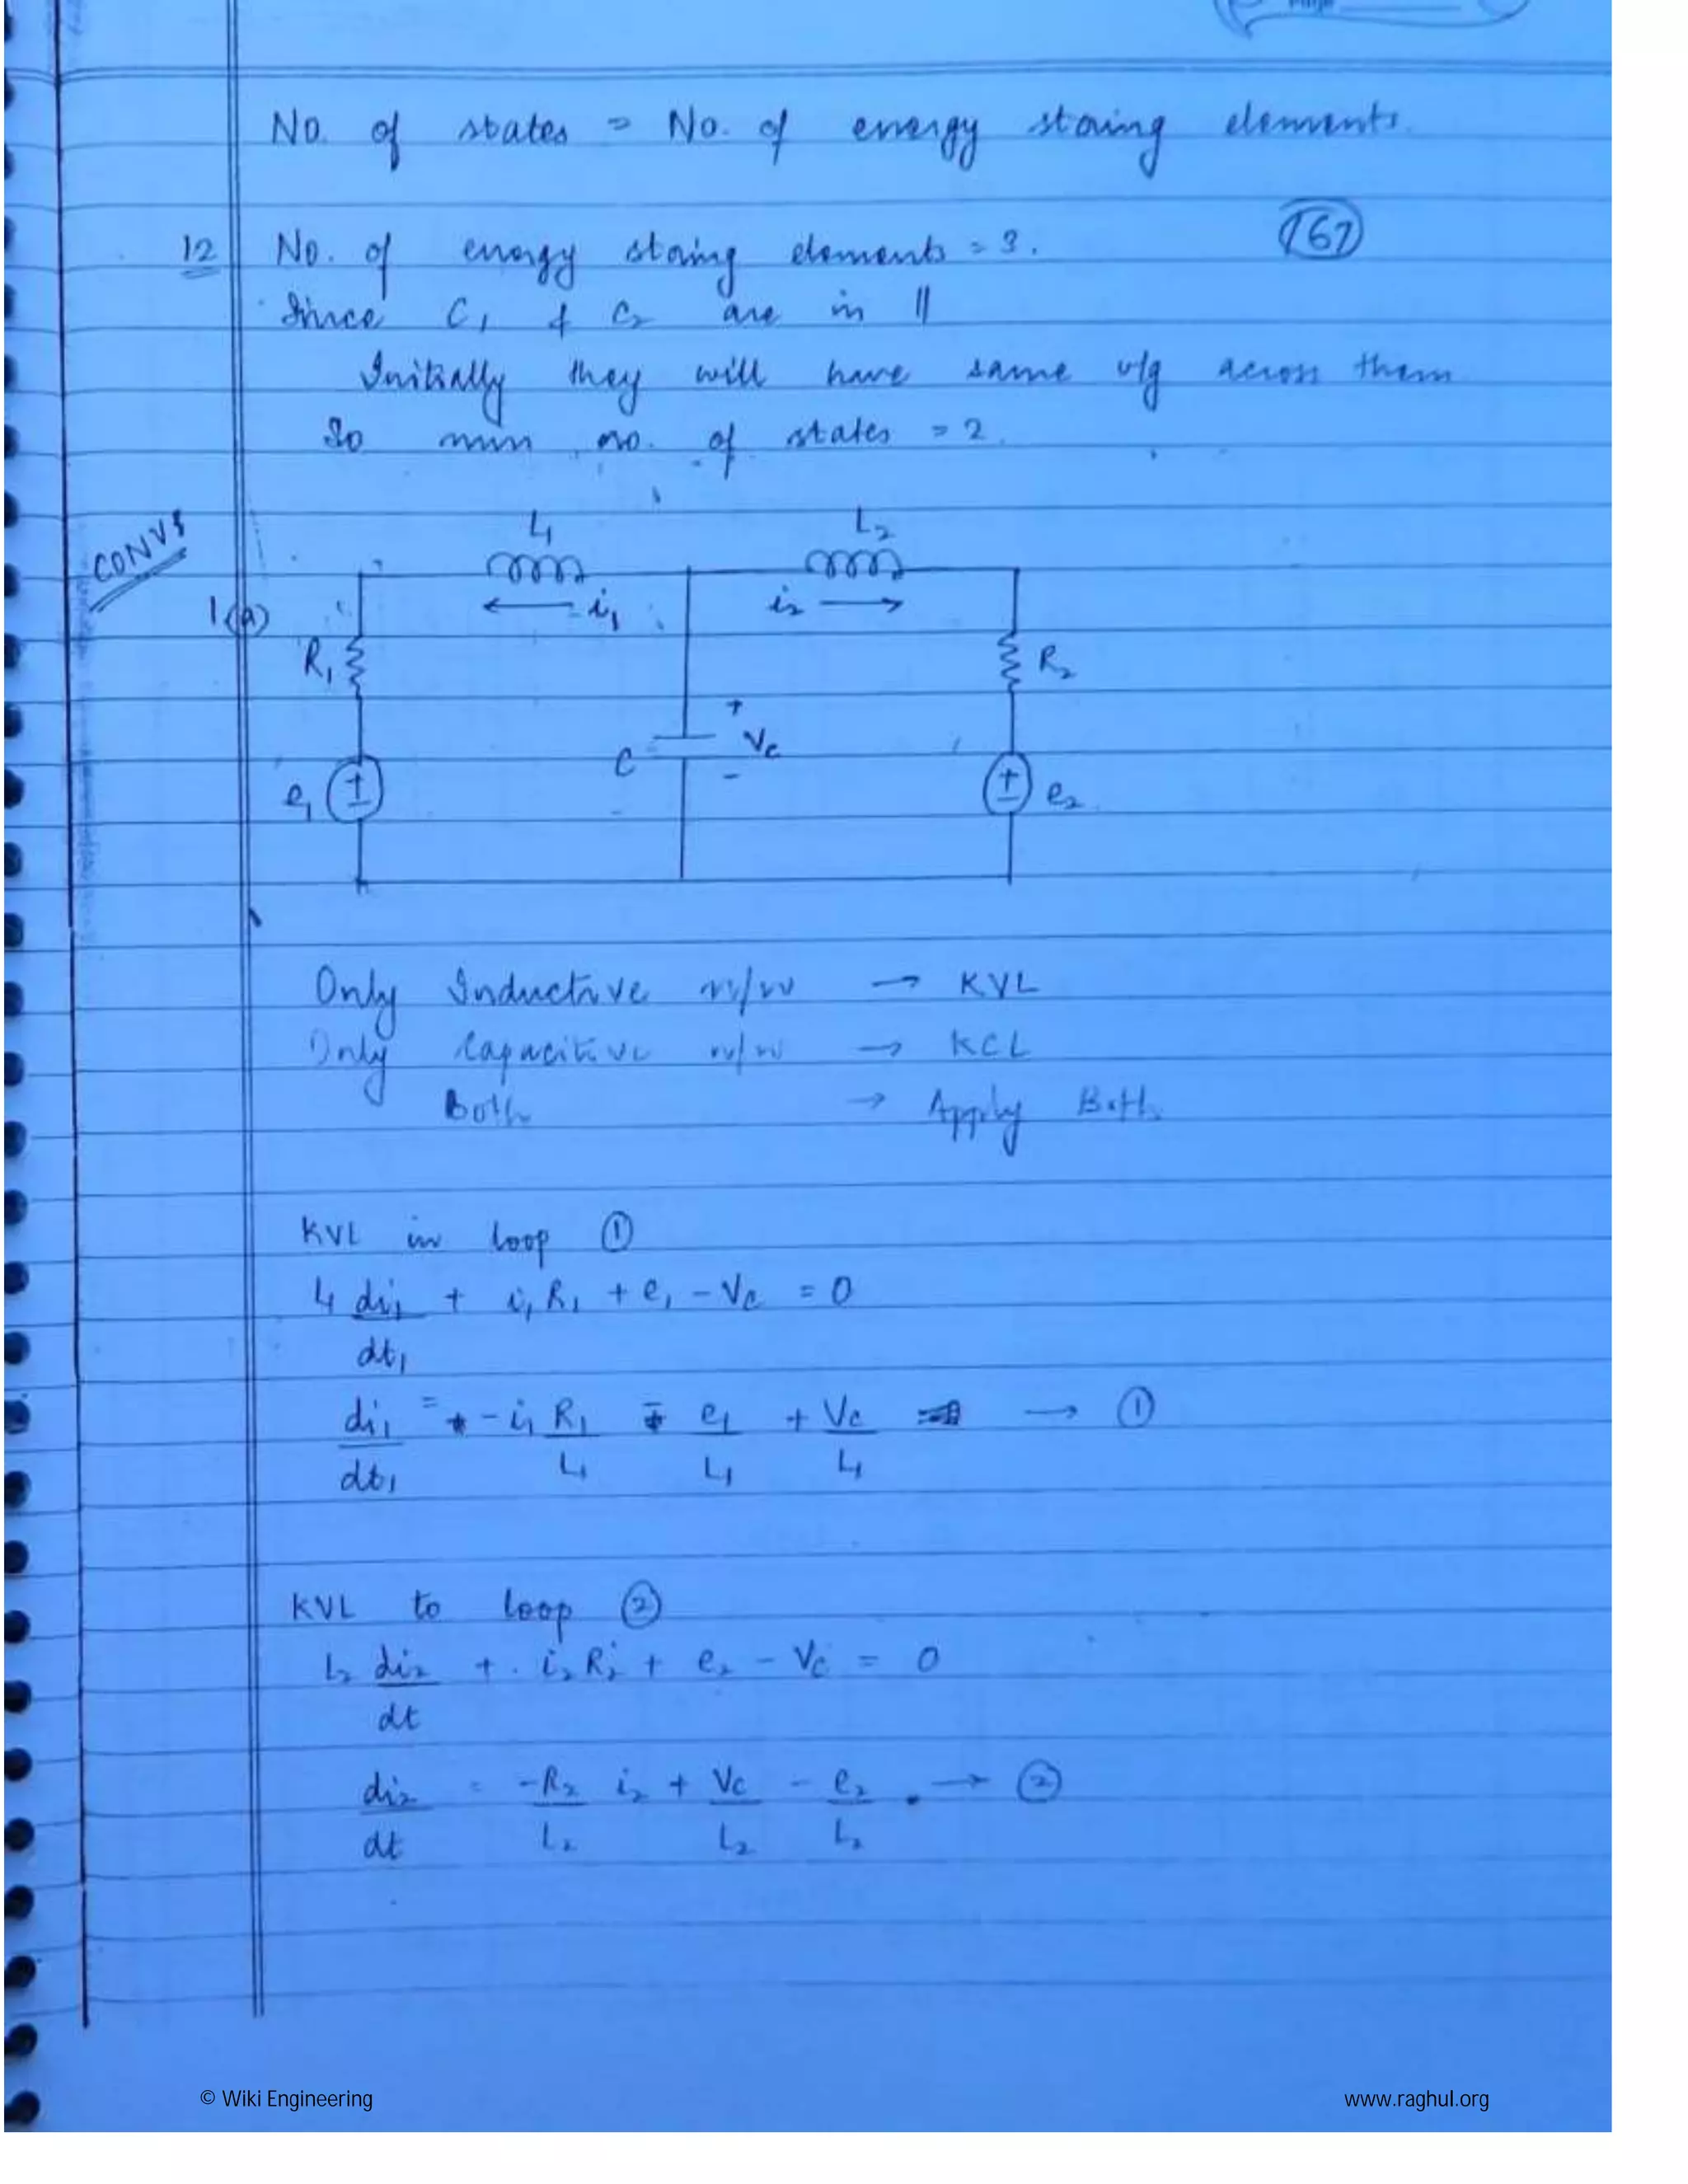 No. of states = No. of energy storing elements.
(167)
12 No. of energy storing elements = 3.
Since C₁ & C₂ are in ||
Initially they will have same v/g across them
So min no. of states = 2.
CONVS
L₁ L₂
1(a) ← i₁ i₂ →
R₁ R₂
+
C Vc
-
e₁ + - + - e₂
Only Inductive n/w → KVL
Only Capacitive n/w → KCL
Both → Apply Both
KVL in loop ①
L₁ di₁ + i₁R₁ + e₁ - Vc = 0
dt₁
di₁ = - i₁ R₁ - e₁ + Vc → ①
dt₁ L₁ L₁ L₁
KVL to loop ②
L₂ di₂ + i₂R₂ + e₂ - Vc = 0
dt
di₂ = -R₂ i₂ + Vc - e₂ → ②
dt L₂ L₂ L₂
© Wiki Engineering www.raghul.org